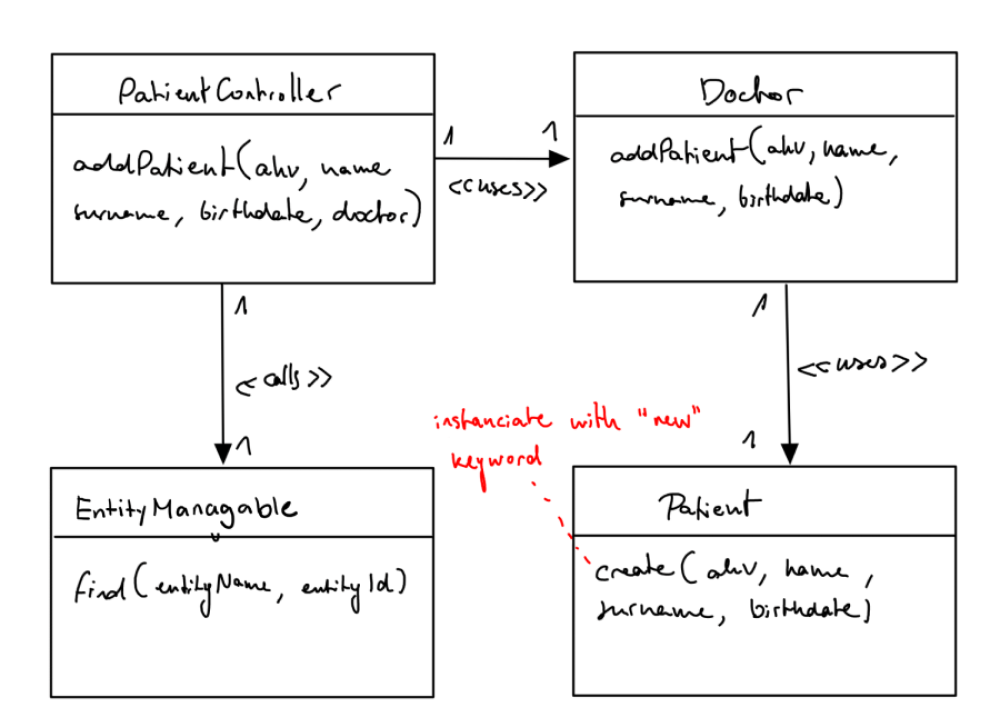 PatientController
addPatient(ahv, name
surname, birthdate, doctor)
1
1
<<uses>>
Doctor
addPatient(ahv, name,
surname, birthdate)
1
<<calls>>
1
1
<<uses>>
1
instanciate with "new"
keyword
EntityManagable
find(entityName, entityId)
Patient
create(ahv, name,
surname, birthdate)